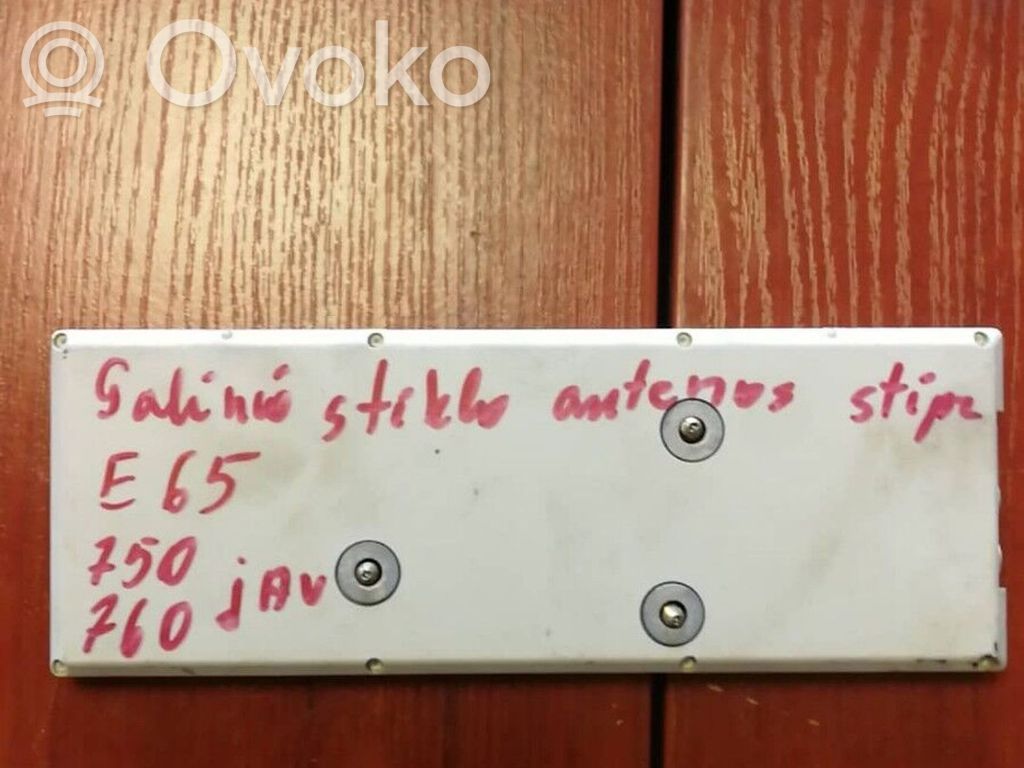 Ovoko
Galinio stiklo antenos stipr
E65
750
760 jAV